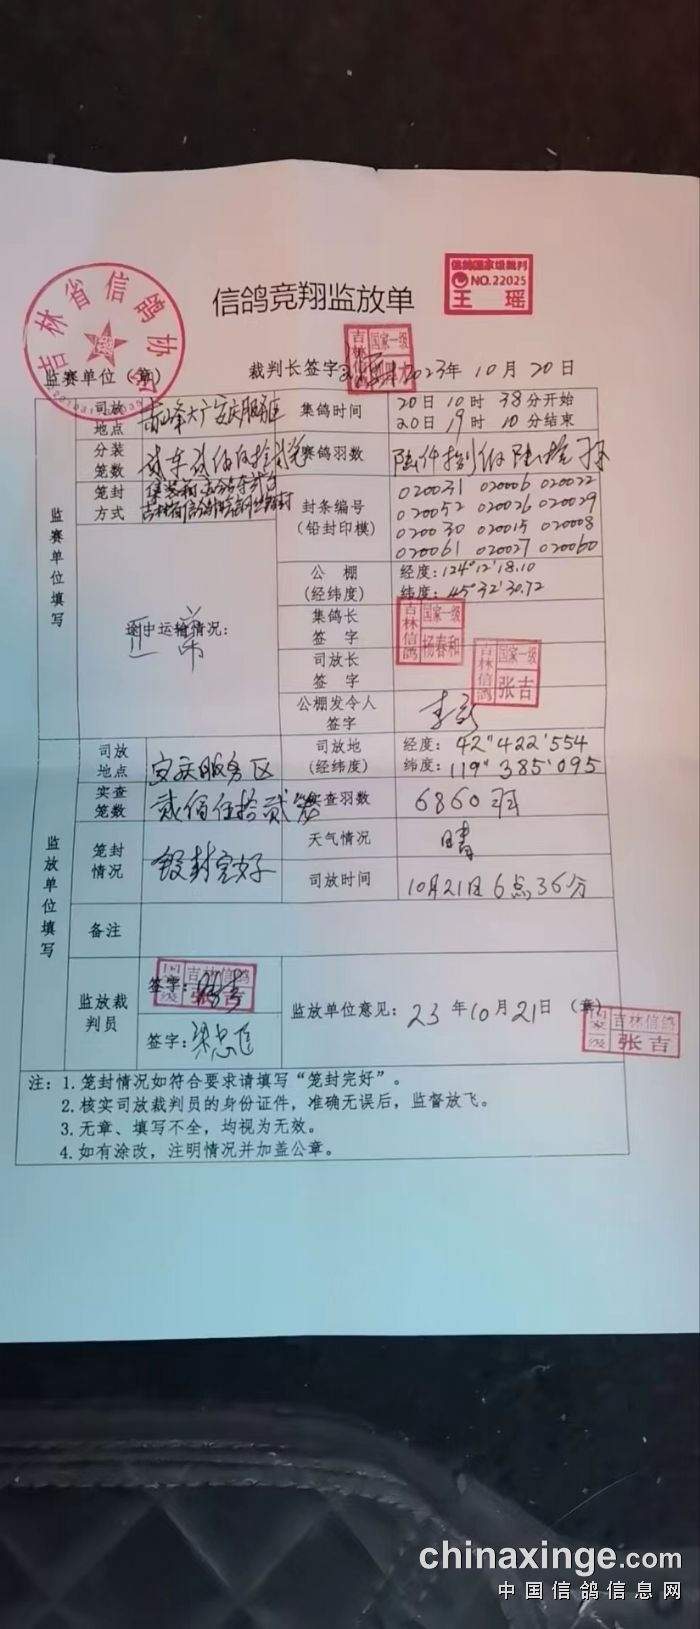 信鸽竞翔监放单
信鸽国家级裁判
NO.22025
王 瑶
吉林省信鸽协会
监赛单位（章）
裁判长签字
国家一级
2023年 10月 20日
监赛单位填写
司放地点
大广安庆服务区
集鸽时间
20日 10时 38分开始
20日 19时 10分结束
分装笼数
赛鸽羽数
笼封方式
封条编号
（铅封印模）
020031 020006 020022
020052 020026 020029
020030 020015 020008
020061 020027 020060
途中运输情况：
正常
公 棚
（经纬度）
经度：124°12'18.10
纬度：45°32'30.72
集鸽长
签 字
吉林信鸽 国家一级 杨春和
司放长
签 字
吉林信鸽 国家一级 张吉
公棚发令人
签字
监放单位填写
司放地点
安庆服务区
司放地
（经纬度）
经度：42"422'554
纬度：119"385'095
实查笼数
贰佰伍拾贰笼
实查羽数
6860羽
笼封情况
铅封完好
天气情况
晴
司放时间
10月21日6点36分
备注
监放裁判员
签字：
国家一级 吉林信鸽 张吉
签字：
监放单位意见：23年10月21日 （章）
国家一级 吉林信鸽 张吉
注：1.笼封情况如符合要求请填写“笼封完好”。
2.核实司放裁判员的身份证件，准确无误后，监督放飞。
3.无章、填写不全，均视为无效。
4.如有涂改，注明情况并加盖公章。
chinaxinge.com
中国信鸽信息网